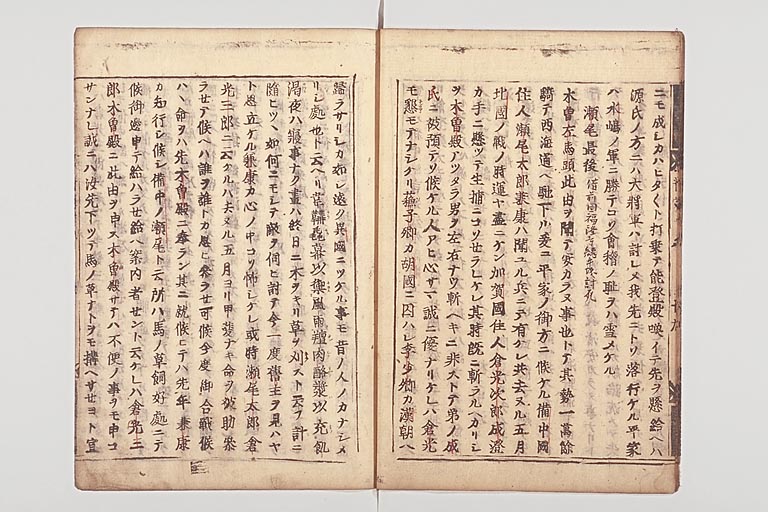 ニモ成シカハヒタヽクト打乗テ能登殿喚イテ先ヲ懸給ヘハ
源氏ノ方ニハ大将軍ハ討レヌ我先ニトソ落行ケル平家
ハ水嶋ノ軍ニ勝テコソ會稽ノ恥ヲハ雪メケル
瀬尾最後
木曽左馬頭此由ヲ聞テ安カラヌ事也トテ其勢一萬餘
騎テ西海道ヘ馳下ル爰ニ平家ノ御方ニ候ケル備中國
住人瀬尾太郎兼康ハ聞ユル兵ニテ有ケレ共去ヌル五月
北國ノ戦ノ時運ヤ盡ニケン加賀國住人倉光次郎成澄
カ手ニ懸ツテ生捕ニコソセラレケレ其時既ニ斬ラルヘカリシ
ヲ木曽殿アツタラ男ヲ左右ナウ斬ヘキニ非ストテ弟ノ成
氏ニ被預テソ候ケル人アヒ心サマ誠ニ優ナリケレハ倉光
モ懇モテナシケリ蘇子卿カ胡國ニ囚ハレ李少卿カ漢朝ヘ
歸ラサリシカ如シ遠ク異國ニツケル事モ昔ノ人ノカナシメ
リシ處也ト云ヘリ韋鞲毳幕以禦風雨羶肉酪漿以充飢
渇夜ハ寝事ナク晝ハ終日ニ木ヲキリ草ヲ刈スト云フ計ニ
随ヒツヽ如何ニモシテ敵ヲ伺ヒ討テ今一度舊主ヲ見ハヤ
ト思立ケル兼康カ心ノ中コソ怖シケレ或時瀬尾太郎倉
光三郎ニ云ケルハ去ヌル五月ヨリ甲斐ナキ命ヲ被助参
ラセテ候ヘハ誰ヲ誰トカ思ヒ参ラセ可候今度御合戦候
ハヽ命ヲハ先木曽殿ニ奉ラン其ニ就候ヒテハ先年兼康
カ知行シ候シ備中ノ瀬尾ト云所ハ馬ノ草飼好處ニテ
候御邊申テ給ハラセ給ヘ案内者セント云ケレハ倉光三
郎木曽殿ニ此由ヲ申ス木曽殿サテハ不便ノ事ヲモ申コ
サンナレ誠ニハ汝先下ツテ馬ノ草ナトヲモ構ヘサセヨト宣